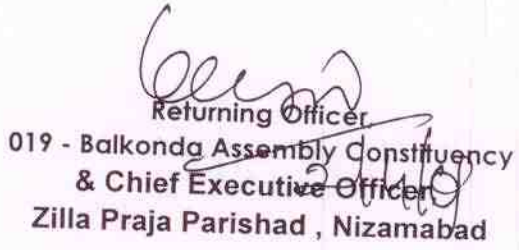 Returning Officer
019 - Balkonda Assembly Constituency
& Chief Executive Officer
Zilla Praja Parishad , Nizamabad